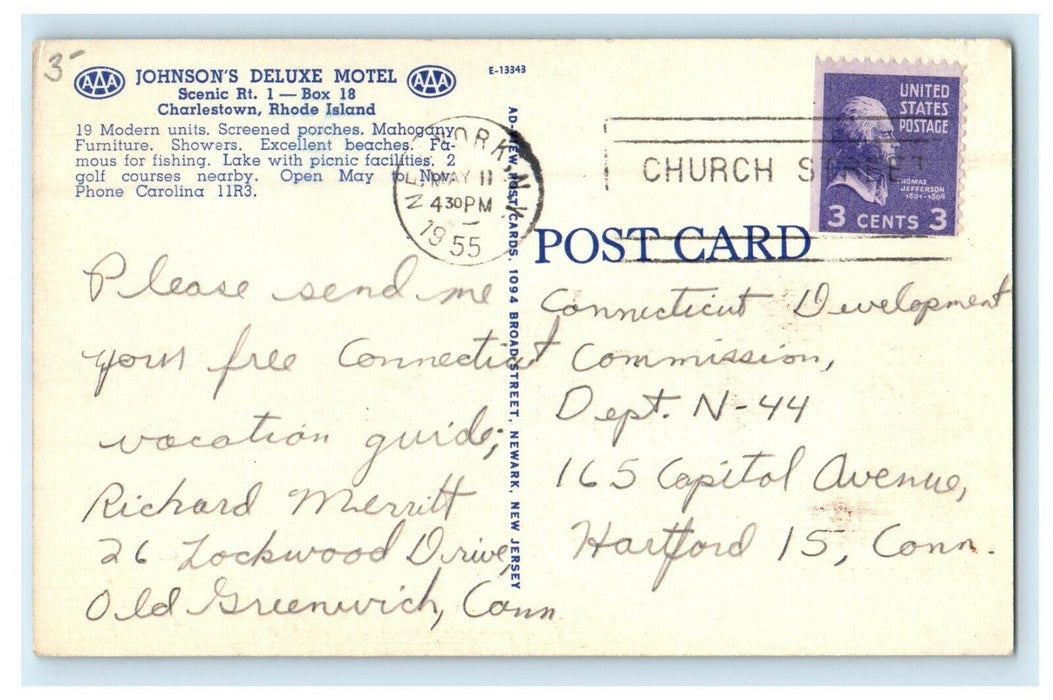 3-
AAA JOHNSON'S DELUXE MOTEL AAA
Scenic Rt. 1 — Box 18
Charlestown, Rhode Island
19 Modern units. Screened porches. Mahogany
Furniture. Showers. Excellent beaches. Fa-
mous for fishing. Lake with picnic facilities. 2
golf courses nearby. Open May to Nov.
Phone Carolina 11R3.
E-13343
NEW YORK, N.Y.
MAY 11
430 PM
1955
CHURCH STREET
UNITED
STATES
POSTAGE
THOMAS
JEFFERSON
1801-1809
3 CENTS 3
POST CARD
AD-VIEW POST CARDS, 1094 BROAD STREET, NEWARK, NEW JERSEY
Please send me
your free Connecticut
vacation guide;
Richard Merritt
26 Lockwood Drive,
Old Greenwich, Conn.
Connecticut Development
Commission,
Dept. N-44
165 Capitol Avenue,
Hartford 15, Conn.